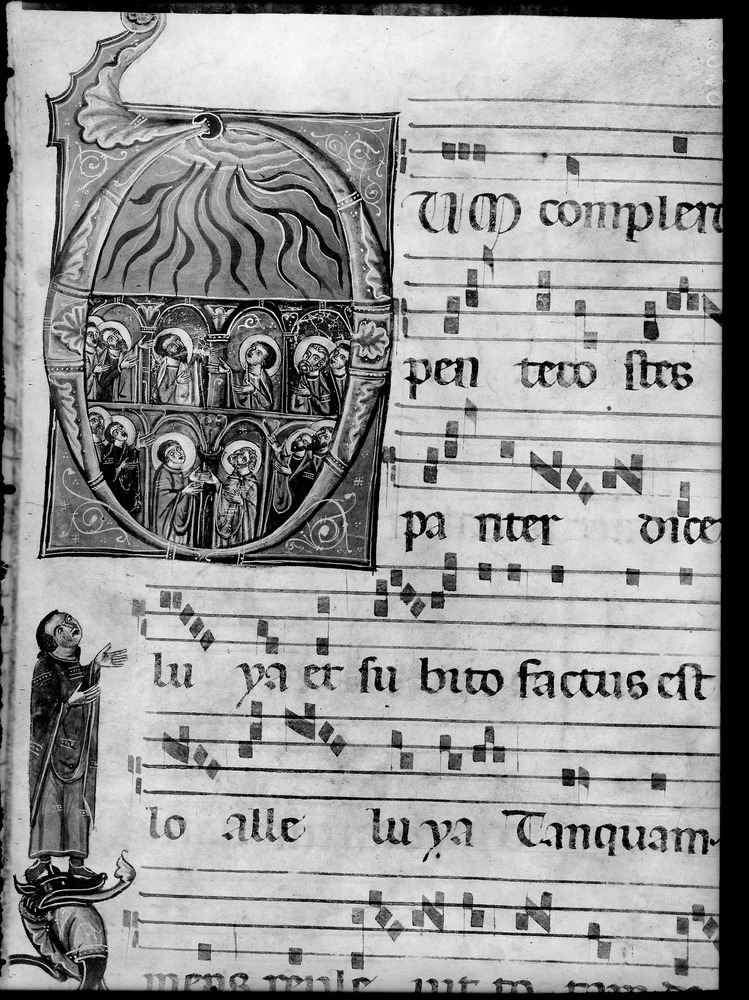 UM complen
pen teco stes
pa riter dice
lu ya et su bito factus est
lo alle lu ya Tanquam